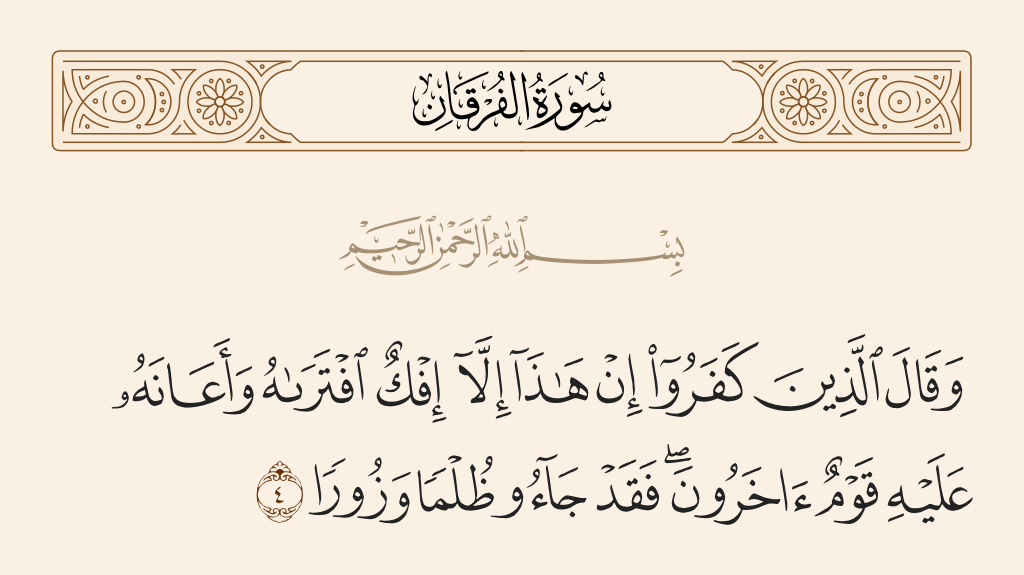 سُورَةُ الفُرْقَانِ
بِسْمِ ٱللَّهِ ٱلرَّحْمَٰنِ ٱلرَّحِيمِ
وَقَالَ ٱلَّذِينَ كَفَرُوٓا۟ إِنْ هَـٰذَآ إِلَّآ إِفْكٌ ٱفْتَرَىٰهُ وَأَعَانَهُۥ
عَلَيْهِ قَوْمٌ ءَاخَرُونَ ۖ فَقَدْ جَآءُو ظُلْمًا وَزُورًا ٤